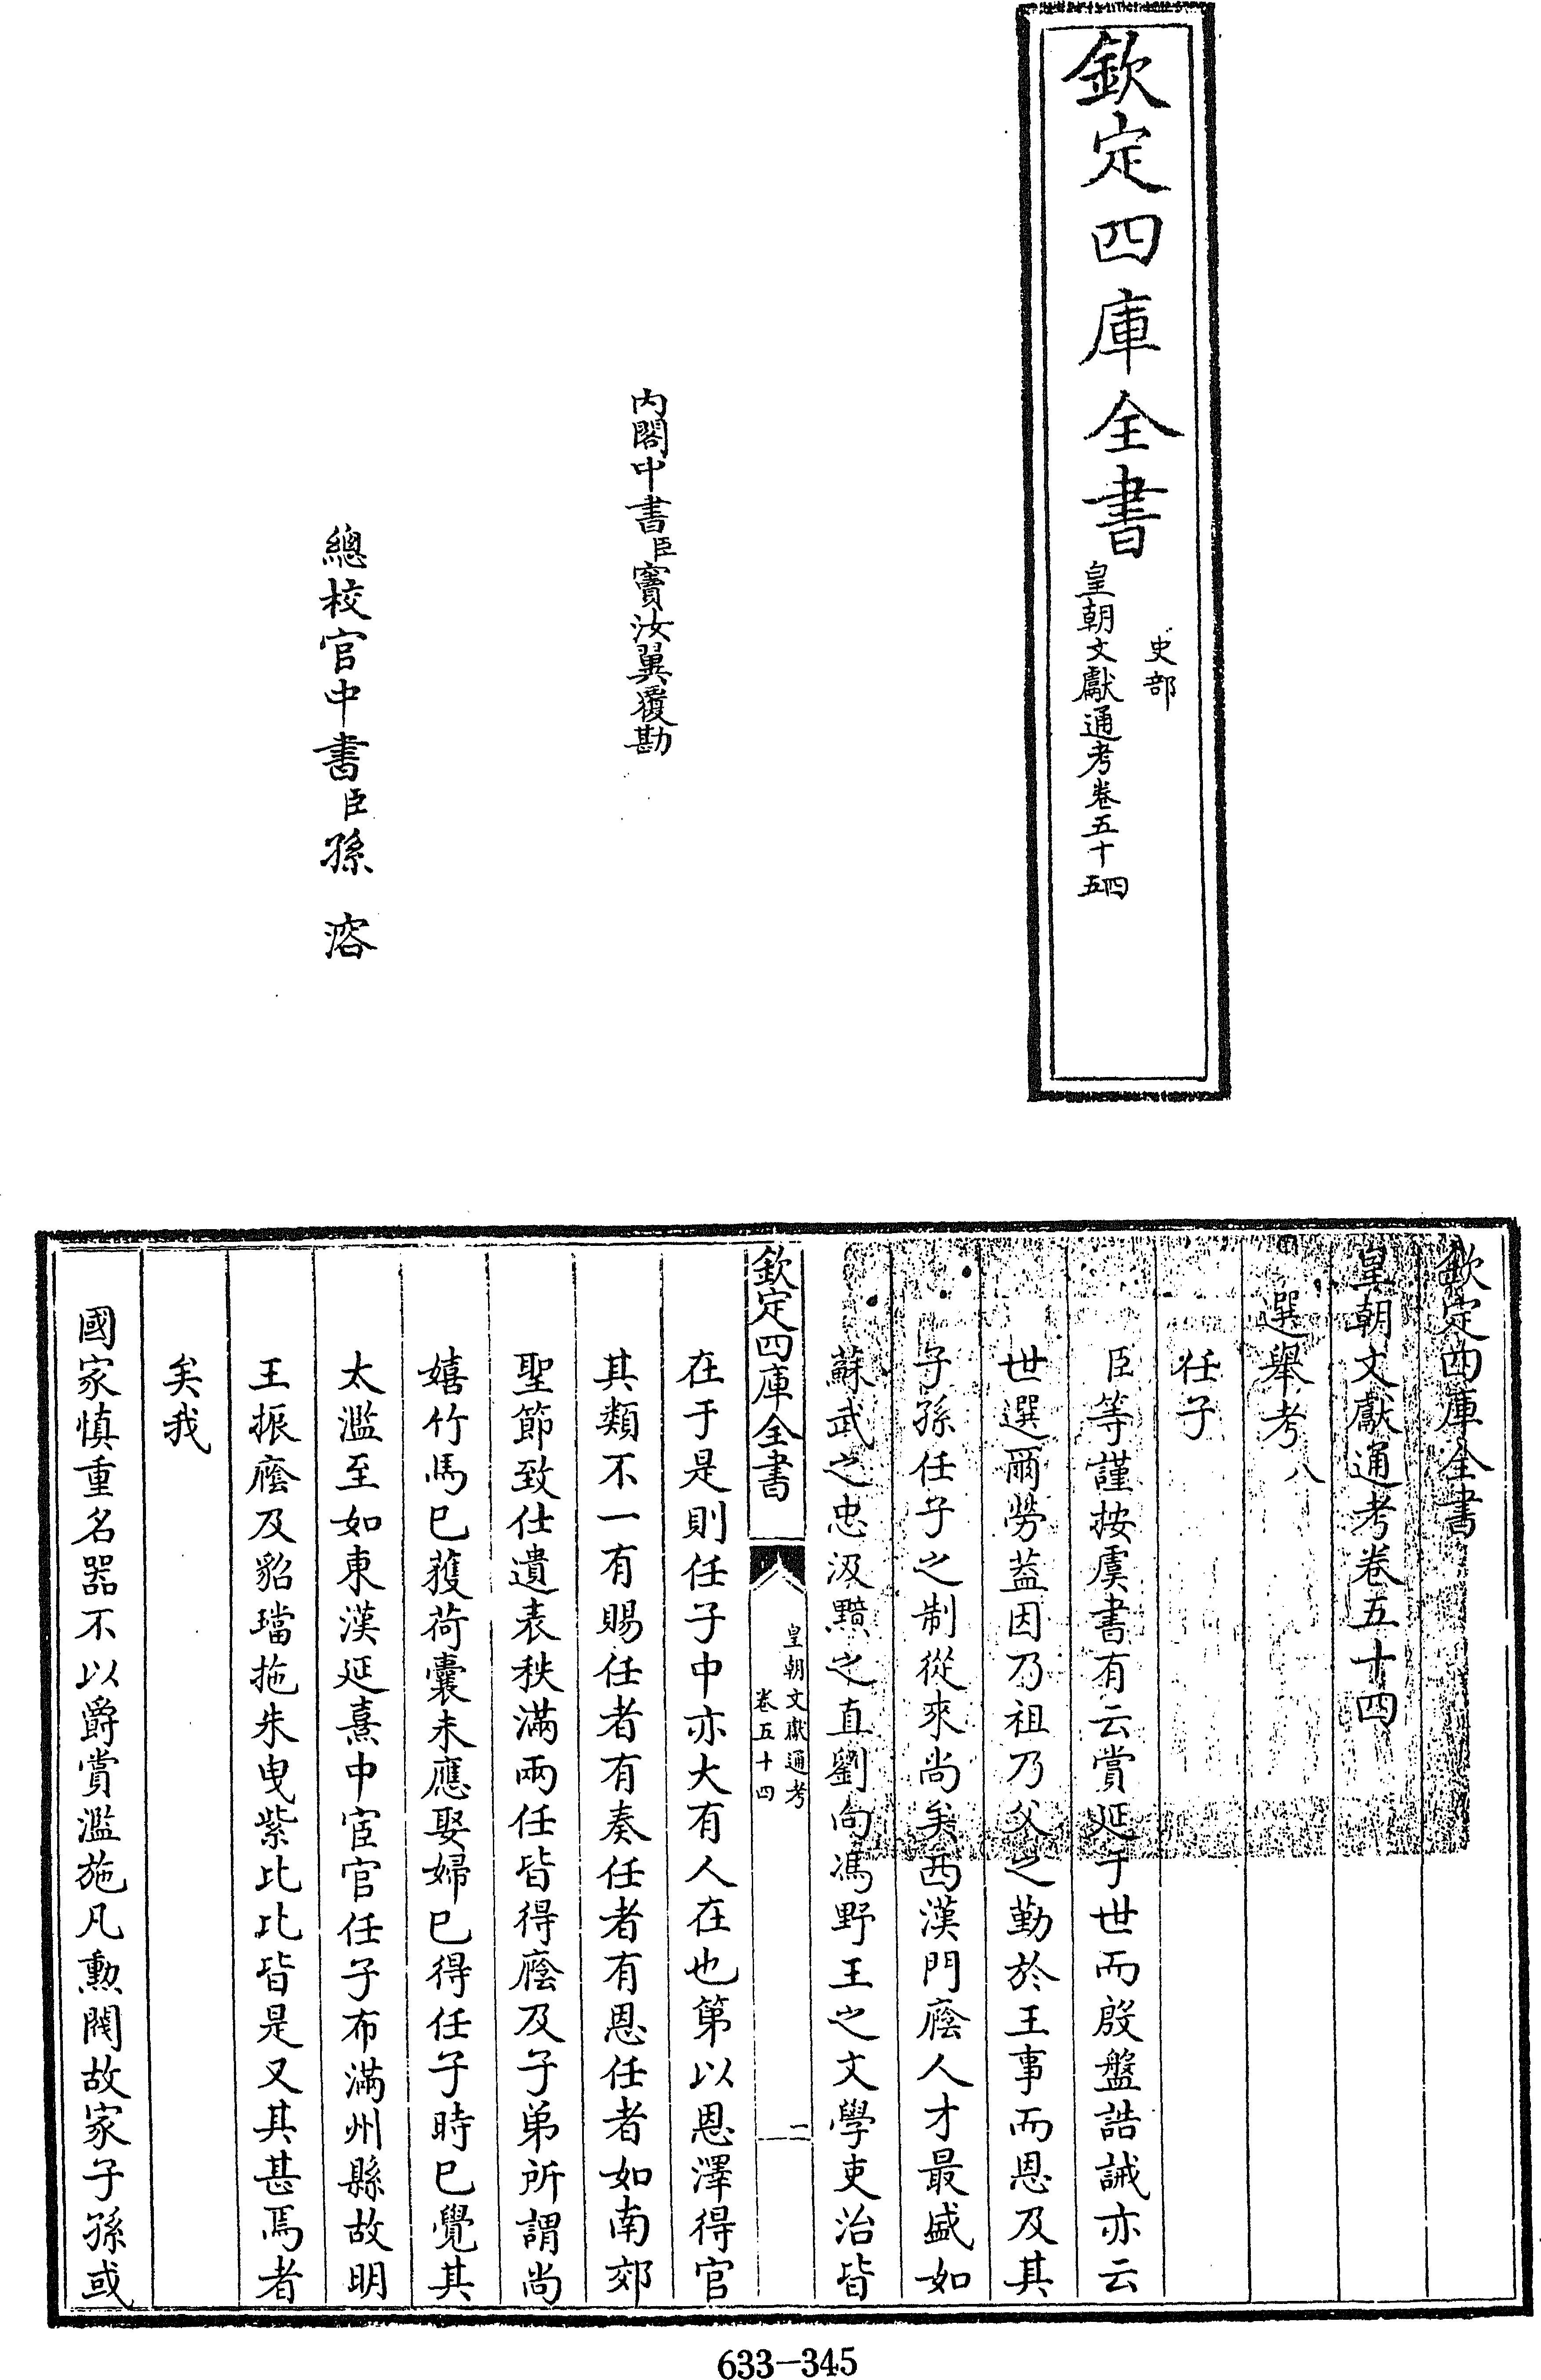 欽定四庫全書
史部
皇朝文獻通考卷五十四五
內閣中書臣竇汝翼覆勘
總校官中書臣孫溶
欽定四庫全書
皇朝文獻通考卷五十四
選舉考八
任子
臣等謹按虞書有云賞延于世而殷盤誥誡亦云
世選爾勞蓋因乃祖乃父之勤於王事而恩及其
子孫任子之制從來尚矣西漢門廕人才最盛如
蘇武之忠汲黯之直劉向馮野王之文學吏治皆
欽定四庫全書
皇朝文獻通考
卷五十四
一
在于是則任子中亦大有人在也第以恩澤得官
其類不一有賜任者有奏任者有恩任者如南郊
聖節致仕遺表秩滿兩任皆得廕及子弟所謂尚
嬉竹馬已獲荷囊未應娶婦已得任子時已覺其
太濫至如東漢延熹中宦官任子布滿州縣故明
王振廕及貂璫拖朱曳紫比比皆是又其甚焉者
矣我
國家慎重名器不以爵賞濫施凡勲閥故家子孫或
633-345